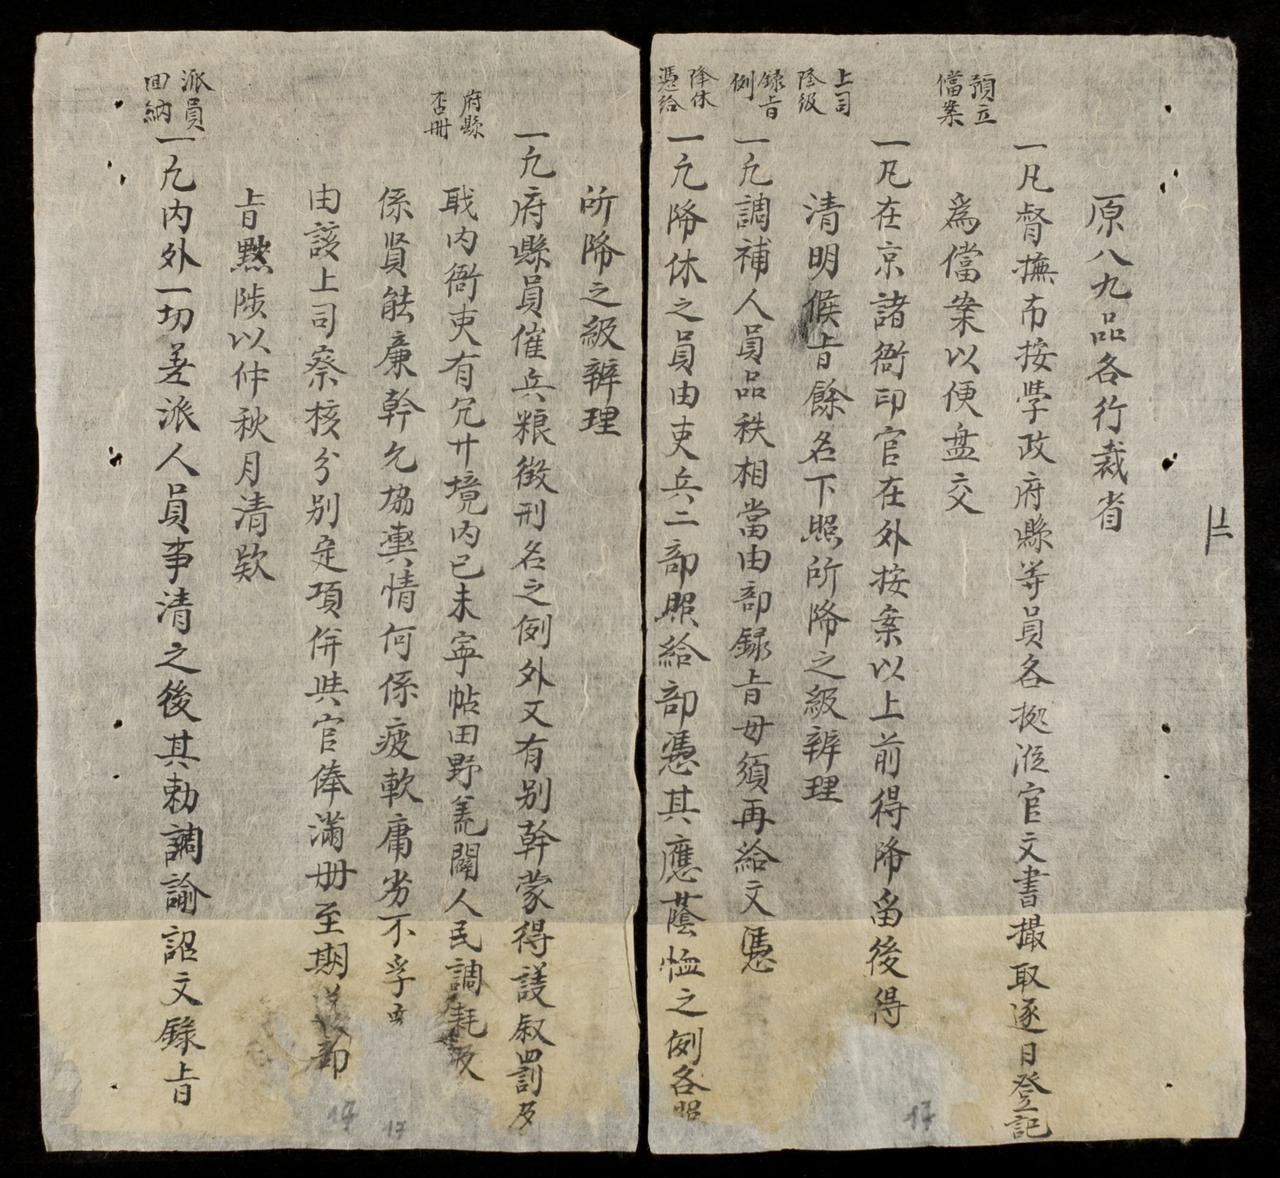 原八九品各行裁省
預立
儅案
一凡督撫布按學政府縣等員各擬派官文書撮取逐日登記
為儅案以便盘交
一凡在京諸衙印官在外按案以上前得降留後得
上司
陞級
清明候旨餘名下照所降之級辨理
録旨
例
一凢調補人員品秩相當由部録旨毋須再給文憑
降休
憑給
一凢降休之員由吏兵二部照給部憑其應蔭恤之例各照
所降之級辨理
一凢府縣員催兵粮徴刑名之例外又有别幹蒙得議叙罰及
府縣
否册
戢内衙吏有冗廿境内已未寜帖田野羗闢人民調耗及
係賢能廉幹允協輿情何係疲軟庸劣不孚
由該上司察核分别定項併此官俸滿册至期 部
旨黙陟以仲秋月清欵
派員
回納
一凢内外一切差派人員事清之後其勅調諭詔文錄旨